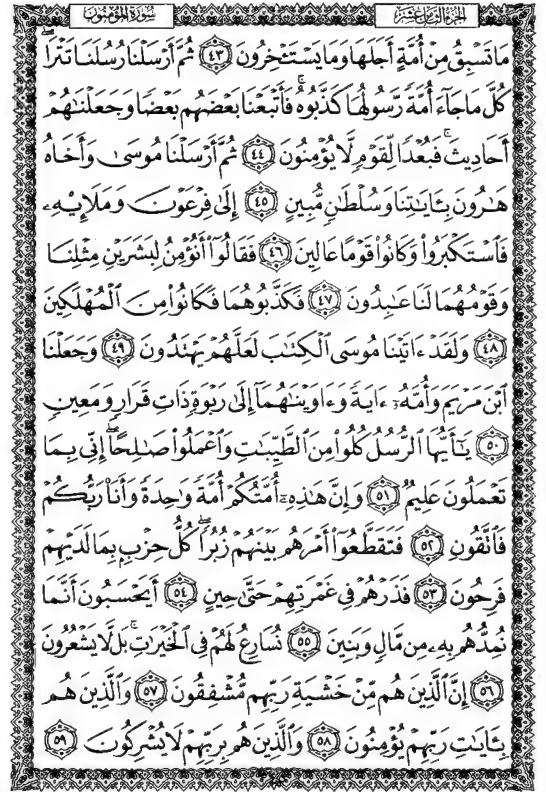 الجزء الثامن عشر
سورة المؤمنون
مَا تَسۡبِقُ مِنۡ أُمَّةٍ أَجَلَهَا وَمَا يَسۡتَـٔۡخِرُونَ ٤٣ ثُمَّ أَرۡسَلۡنَا رُسُلَنَا تَتۡرَاۖ
كُلَّ مَا جَآءَ أُمَّةٗ رَّسُولُهَا كَذَّبُوهُۚ فَأَتۡبَعۡنَا بَعۡضَهُم بَعۡضٗا وَجَعَلۡنَٰهُمۡ
أَحَادِيثَۚ فَبُعۡدٗا لِّقَوۡمٖ لَّا يُؤۡمِنُونَ ٤٤ ثُمَّ أَرۡسَلۡنَا مُوسَىٰ وَأَخَاهُ
هَٰرُونَ بِـَٔايَٰتِنَا وَسُلۡطَٰنٖ مُّبِينٍ ٤٥ إِلَىٰ فِرۡعَوۡنَ وَمَلَإِيْهِۦ
فَٱسۡتَكۡبَرُواْ وَكَانُواْ قَوۡمًا عَالِينَ ٤٦ فَقَالُوٓاْ أَنُؤۡمِنُ لِبَشَرَيۡنِ مِثۡلِنَا
وَقَوۡمُهُمَا لَنَا عَٰبِدُونَ ٤٧ فَكَذَّبُوهُمَا فَكَانُواْ مِنَ ٱلۡمُهۡلَكِينَ
٤٨ وَلَقَدۡ ءَاتَيۡنَا مُوسَى ٱلۡكِتَٰبَ لَعَلَّهُمۡ يَهۡتَدُونَ ٤٩ وَجَعَلۡنَا
ٱبۡنَ مَرۡيَمَ وَأُمَّهُۥٓ ءَايَةٗ وَءَاوَيۡنَٰهُمَآ إِلَىٰ رَبۡوَةٖ ذَاتِ قَرَارٖ وَمَعِينٖ
٥٠ يَٰٓأَيُّهَا ٱلرُّسُلُ كُلُواْ مِنَ ٱلطَّيِّبَٰتِ وَٱعۡمَلُواْ صَٰلِحًاۖ إِنِّي بِمَا
تَعۡمَلُونَ عَلِيمٞ ٥١ وَإِنَّ هَٰذِهِۦٓ أُمَّتُكُمۡ أُمَّةٗ وَٰحِدَةٗ وَأَنَا۠ رَبُّكُمۡ
فَٱتَّقُونِ ٥٢ فَتَقَطَّعُوٓاْ أَمۡرَهُم بَيۡنَهُمۡ زُبُرٗاۖ كُلُّ حِزۡبِۭ بِمَا لَدَيۡهِمۡ
فَرِحُونَ ٥٣ فَذَرۡهُمۡ فِي غَمۡرَتِهِمۡ حَتَّىٰ حِينٍ ٥٤ أَيَحۡسَبُونَ أَنَّمَا
نُمِدُّهُم بِهِۦ مِن مَّالٖ وَبَنِينَ ٥٥ نُسَارِعُ لَهُمۡ فِي ٱلۡخَيۡرَٰتِۚ بَل لَّا يَشۡعُرُونَ
٥٦ إِنَّ ٱلَّذِينَ هُم مِّنۡ خَشۡيَةِ رَبِّهِم مُّشۡفِقُونَ ٥٧ وَٱلَّذِينَ هُم
بِـَٔايَٰتِ رَبِّهِمۡ يُؤۡمِنُونَ ٥٨ وَٱلَّذِينَ هُم بِرَبِّهِمۡ لَا يُشۡرِكُونَ ٥٩